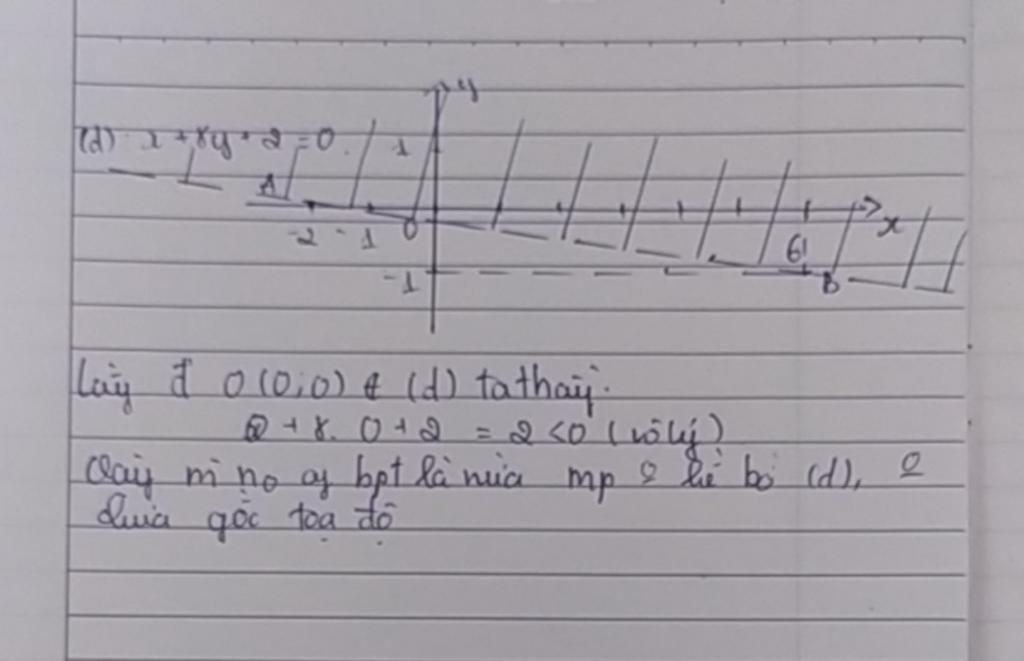 y
(d): x + 8y + 2 = 0.
1
A
-2 -1 O 6 x
-1 B
Lấy đ O(0;0) ∉ (d) ta thấy:
0 + 8. 0 + 2 = 2 < 0 (vô lý)
Vậy m no of bpt là nửa mp 0 kể bờ (d), 0
chứa gốc toạ độ